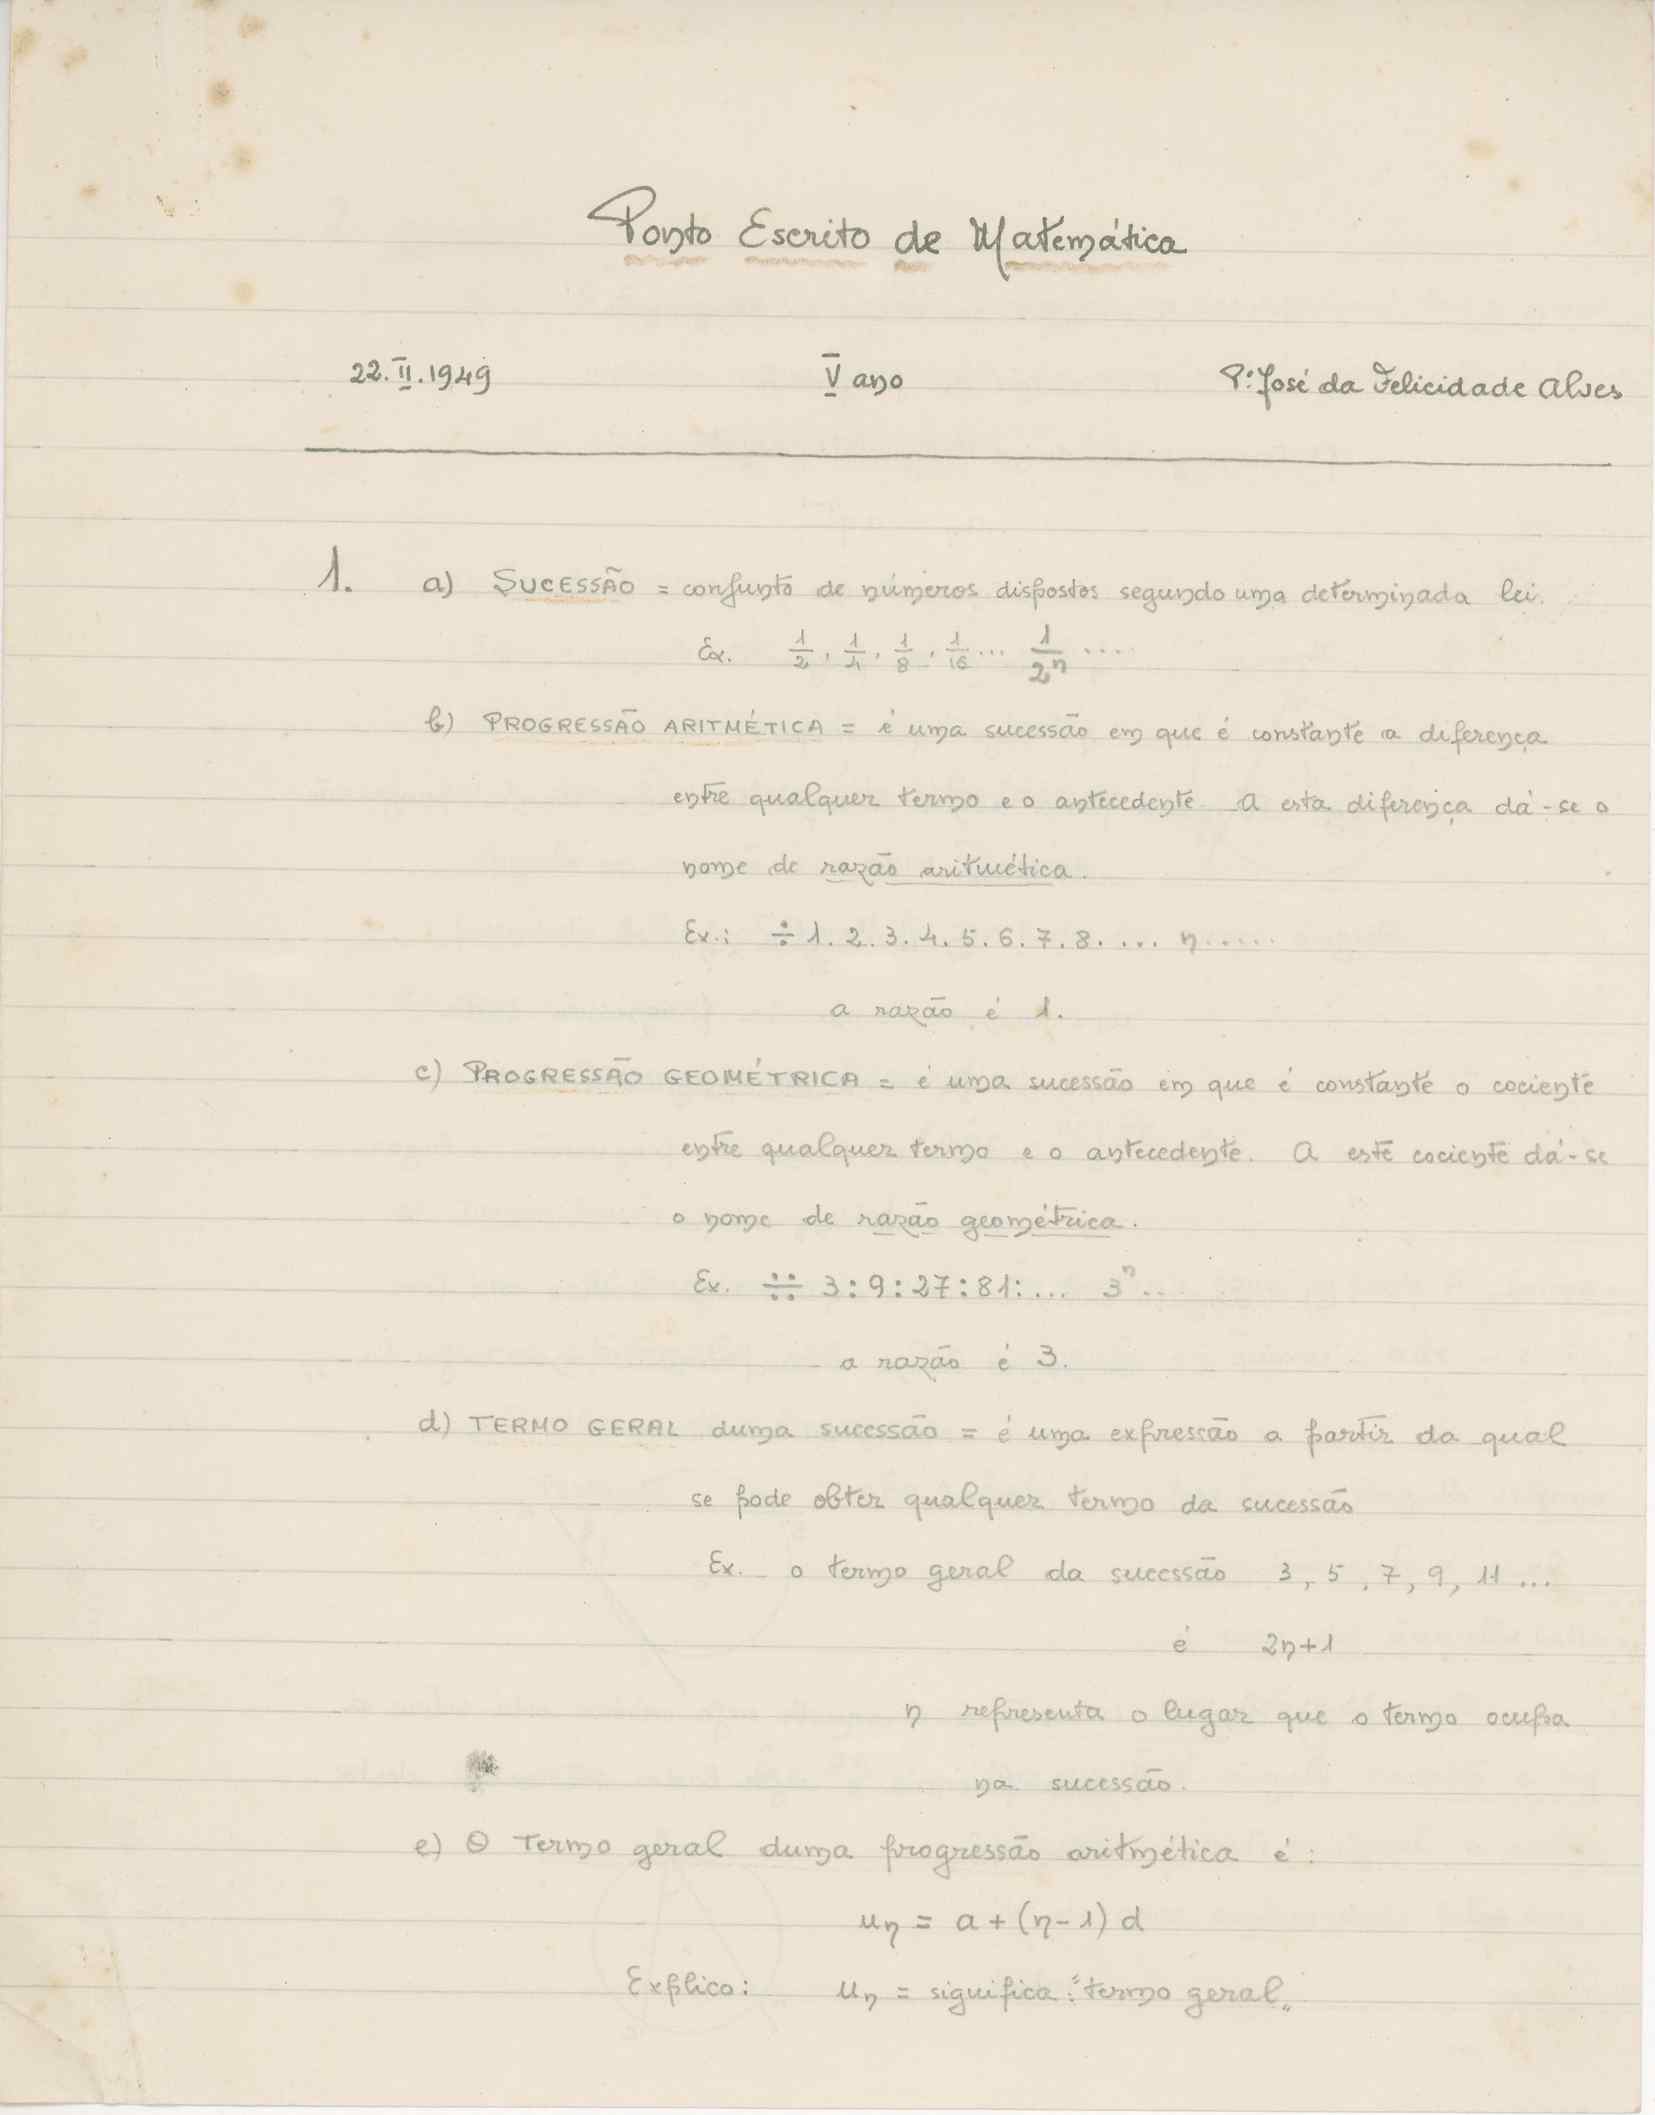 Ponto Escrito de Matemática
22.II.1949 V ano P.e José da Felicidade Alves
1. a) SUCESSÃO = conjunto de números dispostos segundo uma determinada lei.
Ex. 1/2, 1/4, 1/8, 1/16 ... 1/2ⁿ ....
b) PROGRESSÃO ARITMÉTICA = é uma sucessão em que é constante a diferença
entre qualquer termo e o antecedente. A esta diferença dá-se o
nome de razão aritmética.
Ex.: ÷ 1. 2. 3. 4. 5. 6. 7. 8. ... n.....
a razão é 1.
c) PROGRESSÃO GEOMÉTRICA = é uma sucessão em que é constante o cociente
entre qualquer termo e o antecedente. A este cociente dá-se
o nome de razão geométrica.
Ex. ÷÷ 3:9:27:81:... 3ⁿ..
a razão é 3.
d) TERMO GERAL duma sucessão = é uma expressão a partir da qual
se pode obter qualquer termo da sucessão
Ex. o termo geral da sucessão 3, 5, 7, 9, 11 ...
é 2n+1
n representa o lugar que o termo ocupa
na sucessão.
e) O Termo geral duma progressão aritmética é:
uₙ = a + (n-1) d
Explico: uₙ = significa: "termo geral„